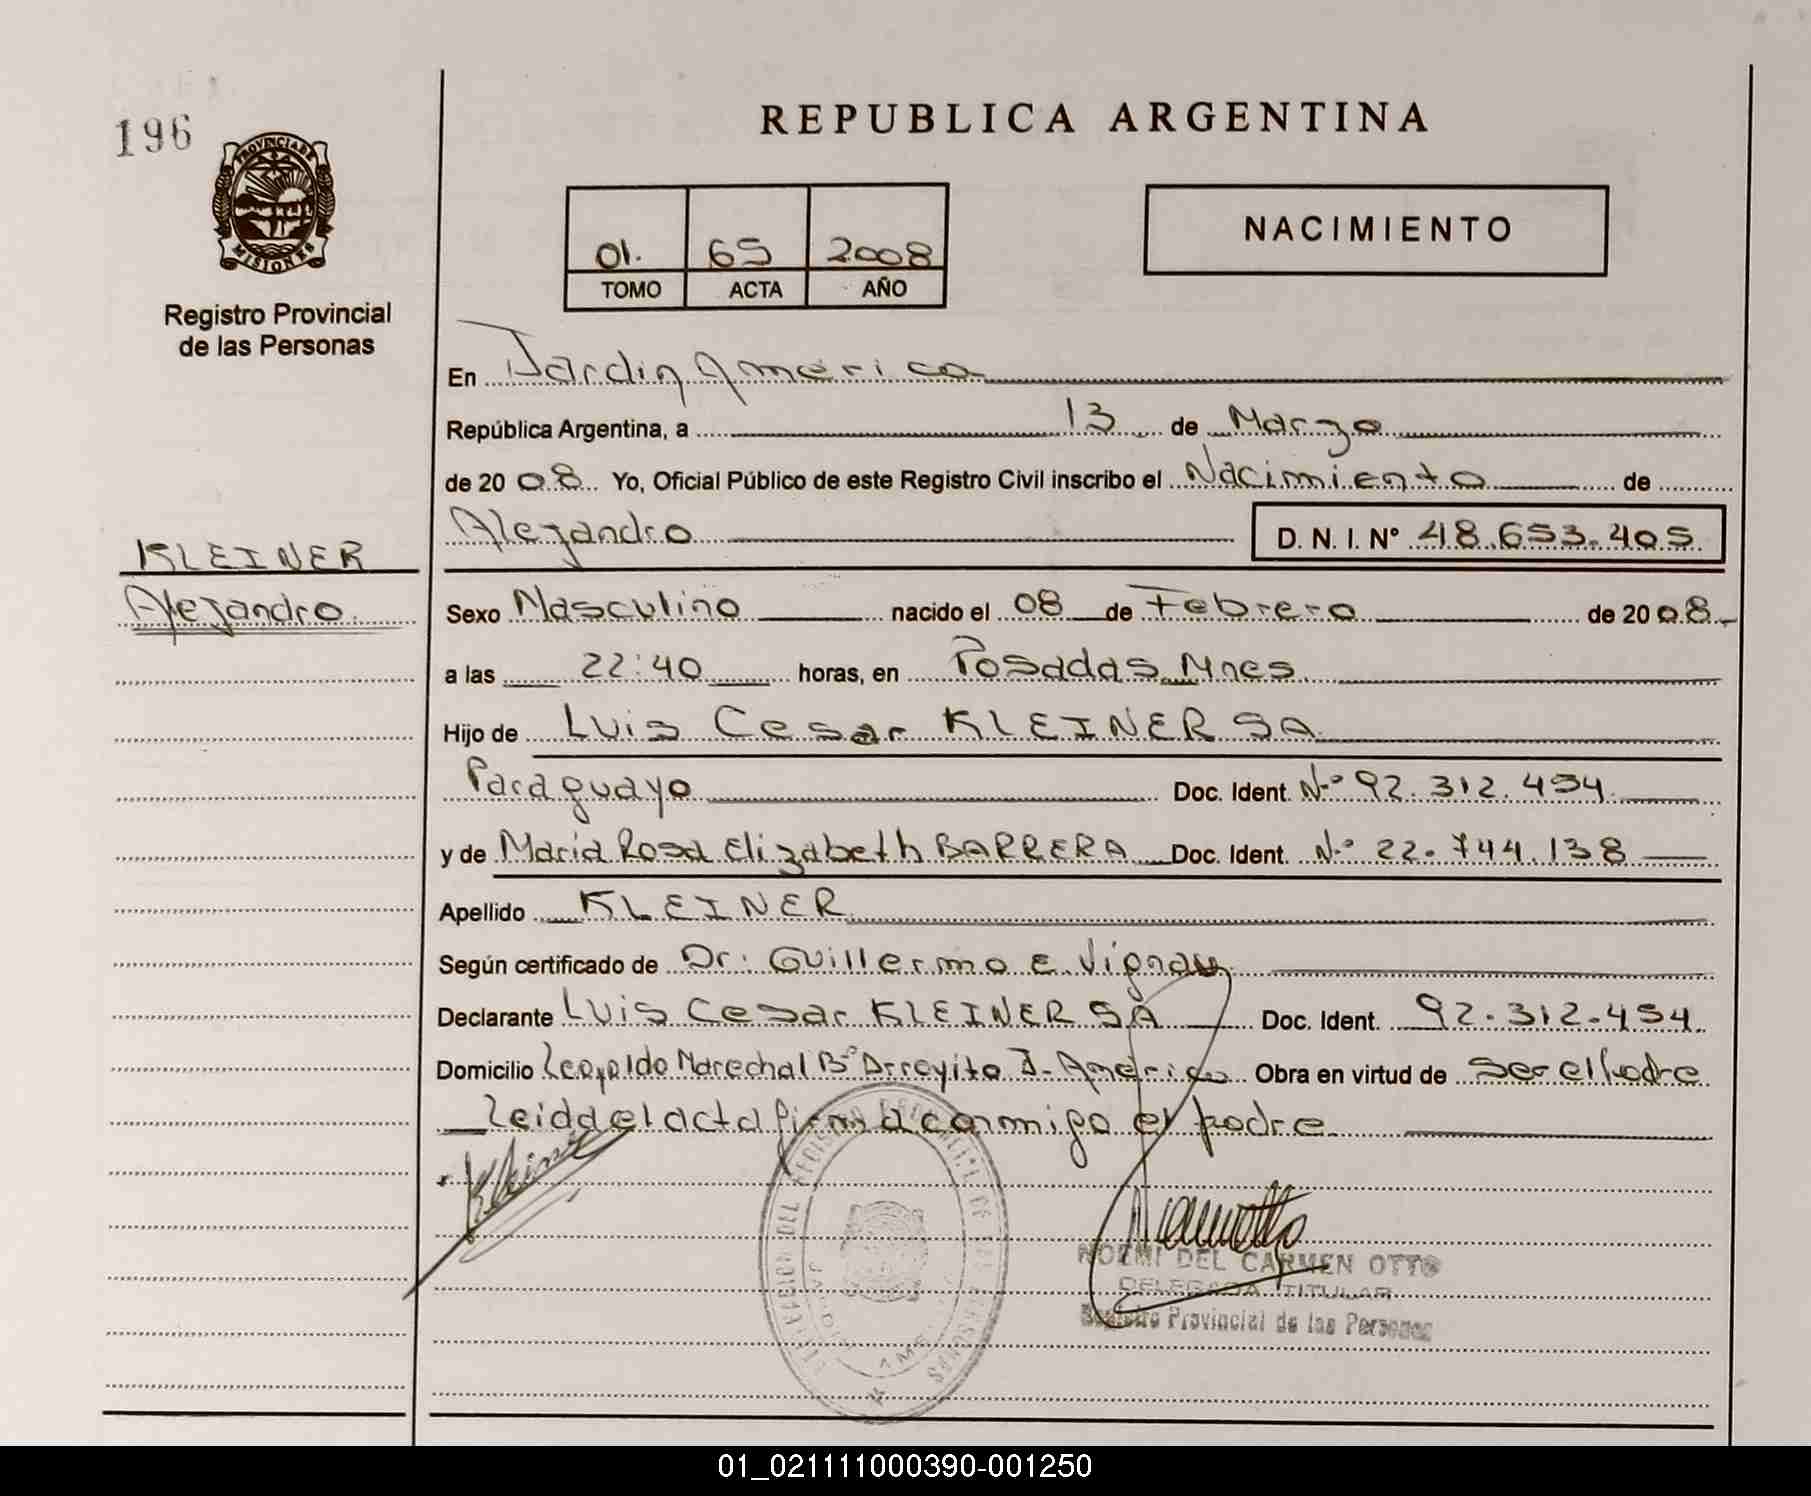 196
PROVINCIA DE
MISIONES
Registro Provincial
de las Personas
KLEINER
Alejandro.
REPUBLICA ARGENTINA
01. 65 2008
TOMO ACTA AÑO
NACIMIENTO
En Jardin America
República Argentina, a 13 de Marzo
de 2008 Yo, Oficial Público de este Registro Civil inscribo el Nacimiento de
Alejandro D. N. I. N° 48.653.405
Sexo Masculino nacido el 08 de Febrero de 2008.
a las 22:40 horas, en Posadas Mnes
Hijo de Luis Cesar KLEINER SA
Paraguayo Doc. Ident. N° 92.312.454
y de Maria Rosa Elizabeth BARRERA Doc. Ident. N° 22.744.138
Apellido KLEINER
Según certificado de Dr: Guillermo E. Vignau
Declarante Luis Cesar KLEINER SA Doc. Ident. 92.312.454
Domicilio Leopoldo Marechal B° Arroyito J. America Obra en virtud de Ser el Padre
Leida el acta firma conmigo el padre
NOEMI DEL CARMEN OTTO
DELEGADA TITULAR
Registro Provincial de las Personas
01_021111000390-001250